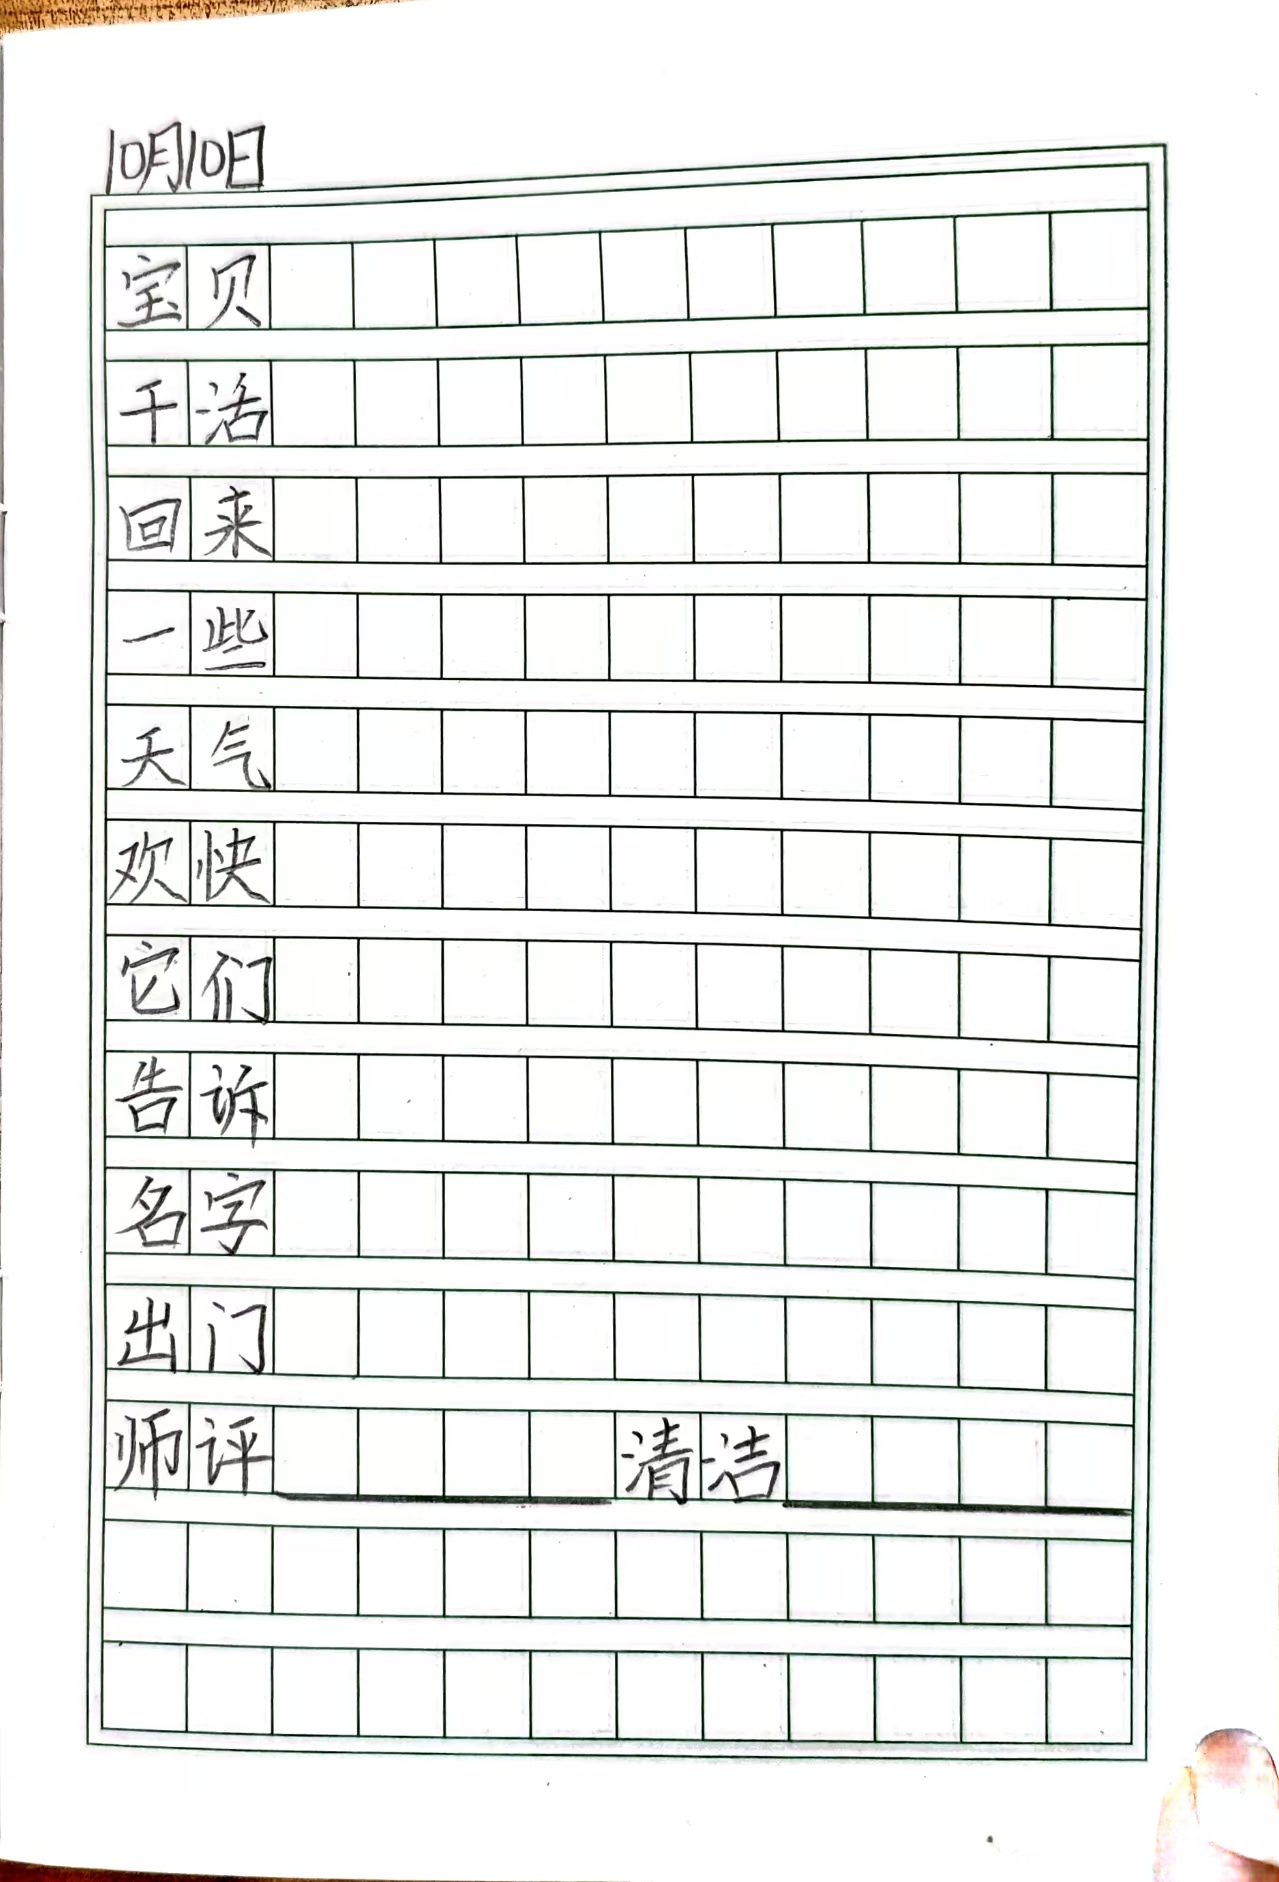 10月10日
宝贝
干活
回来
一些
天气
欢快
它们
告诉
名字
出门
师评 清洁